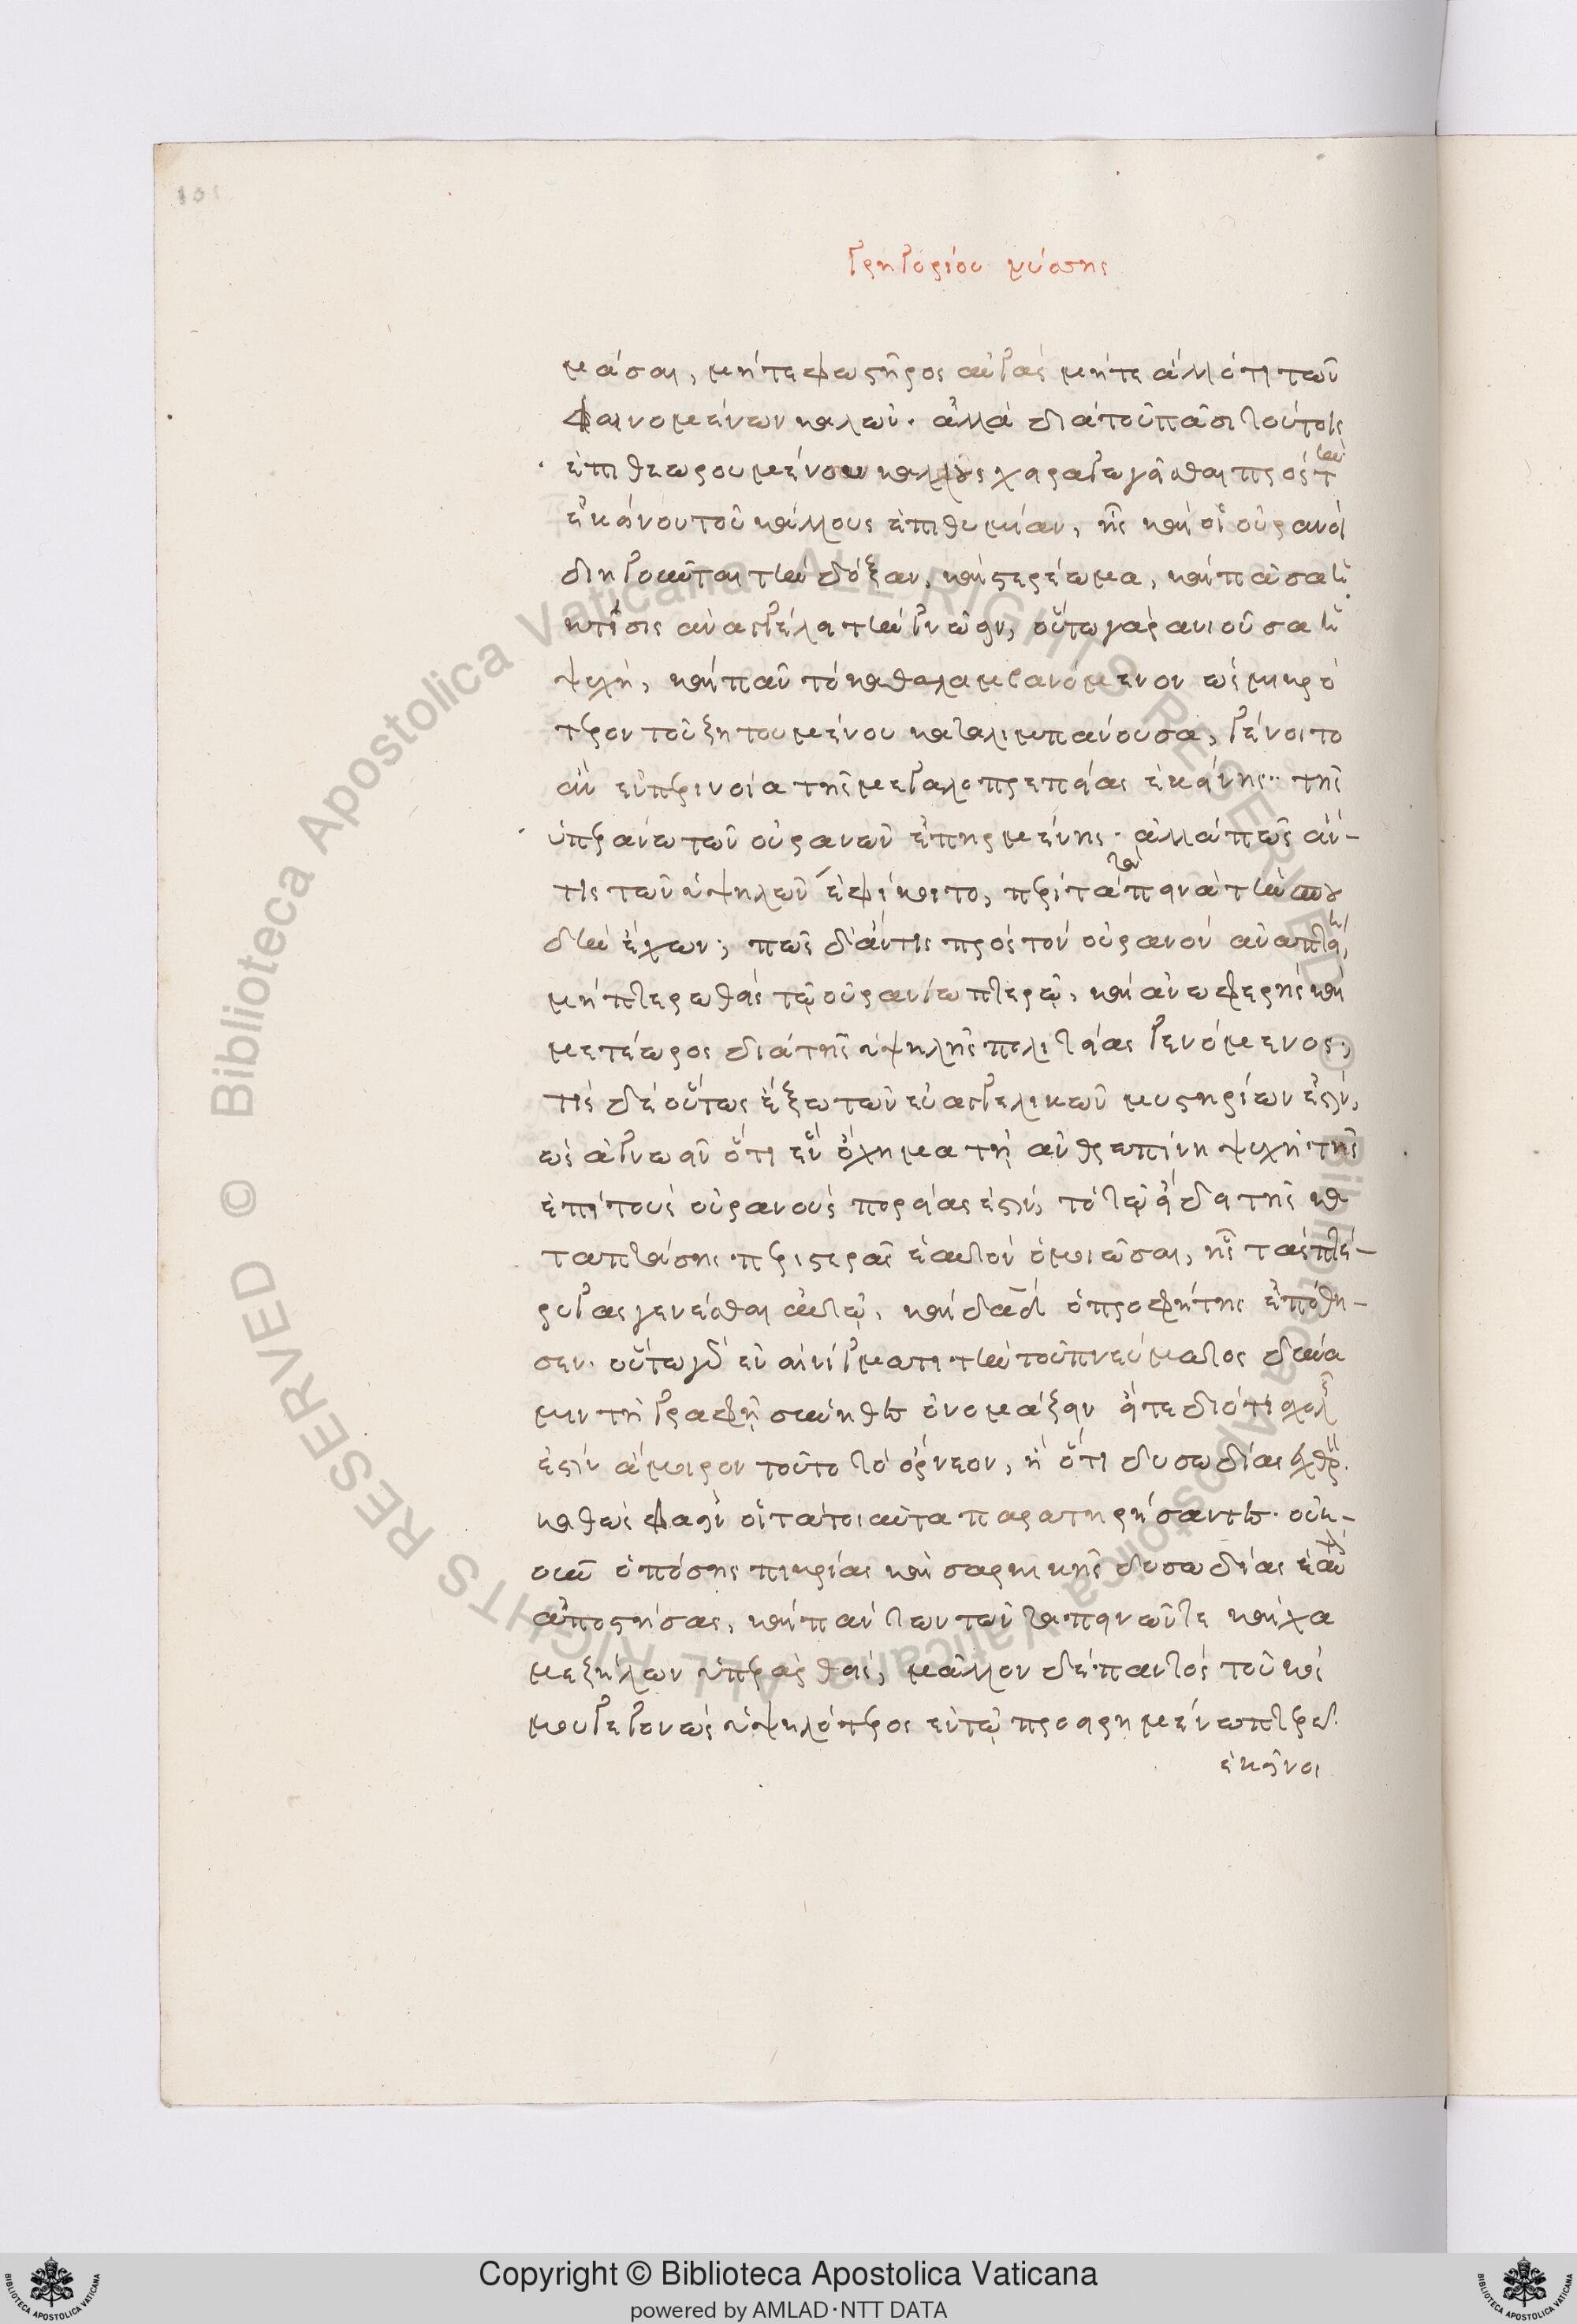 101
Γρηγορίου νύσσης
μάσαι, μήτε φωστῆρος αὐγὰς μήτε ἄλλό τι τῶν
φαινομένων καλῶν· ἀλλὰ διὰ τοῦ πᾶσι τούτοις
ἐπιθεωρουμένου κάλλους χειραγωγεῖσθαι πρὸς τὴν
ἐκείνου τοῦ κάλλους ἐπιθυμίαν, ἧς καὶ οἱ οὐρανοὶ
διηγοῦνται τὴν δόξαν, καὶ στερέωμα, καὶ πᾶσα ἡ
κτίσις ἀναγγέλει τὴν γνῶσιν, οὕτω γὰρ ἀνιοῦσα ἡ
ψυχὴ, καὶ πᾶν τὸ καταλαμβανόμενον ὡς μικρό
τερον τοῦ ζητουμένου καταλιμπάνουσα, γένοιτο
ἂν ἐν περινοία τῆς μεγαλοπρεπείας ἐκείνης· τῆς
ὑπεράνω τῶν οὐρανῶν ἐπηρμένης· ἀλλὰ πῶς ἄν-
τις τῶν ὑψηλῶν ἐφίκοιτο, περὶ τὰ ταπεινὰ τὴν σπου
δὴν ἔχων; πῶς δ' ἄν τις πρὸς τὸν οὐρανὸν ἀναπταίη,
μὴ πτερωθεὶς τῷ οὐρανίω πτερῷ, καὶ ἀνωφερὴς καὶ
μετέωρος διὰ τῆς ὑψηλῆς πολιτείας γενόμενος;
τίς δὲ οὕτως ἔξω τῶν εὐαγγελικῶν μυστηρίων ἐστὶν,
ὡς ἀγνοεῖν ὅτι ἓν ὄχημα τῇ ἀνθρωπίνη ψυχῇ τῆς
ἐπὶ τοὺς οὐρανοὺς πορείας ἐστὶ, τὸ τῷ εἴδει τῆς κα
ταπτάσης περιστερᾶς ἑαυτὸν ὁμοιῶσαι, ἧς τὰς πτέ-
ρυγας γενέσθαι αὐτῷ, καὶ δαδ ὁ προφήτης ἐπόθη-
σεν. οὕτω γὰρ ἐν αἰνίγματι τὴν τοῦ πνεύματος δύνα
μιν τῇ γραφῇ σύνηθες ὀνομάζειν εἴτε διότι χολῆς
ἐστὶν ἄμοιρον τοῦτο τὸ ὄρνεον, ἢ ὅτι δυσωδίας ἐχθρὸν
καθὼς φασὶν οἱ τὰ τοιαῦτα παρατηρήσαντες· οὐκ-
οῦν ὁ πάσης πικρίας καὶ σαρκικῆς δυσωδίας ἑαυτὸν
ἀποστήσας, καὶ πάντων τῶν ταπεινῶν τε καὶ χα
μεζήλων ὑπεραρθεὶς, μᾶλλον δὲ παντὸς τοῦ κόσ
μου γεγονὼς ὑψηλότερος ἐν τῷ προειρημένω πτερῷ.
ἐκεῖνοι